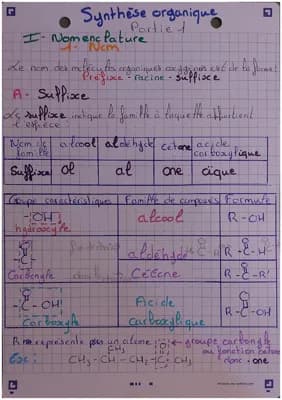 Synthèse organique
Partie 1
I - Nomenclature
1 - Nom
Le nom des molécules organiques oxygénées est de la forme
Préfixe - racine - suffixe
A - Suffixe
Le suffixe indique la famille à laquelle appartient
l'espèce :
Nom de famille alcool aldéhyde cétone acide carboxylique
Suffixe ol al one oïque
Groupe caractéristiques Famille de composés Formule
-OH hydroxyle alcool R-OH
-C- O aldéhyde R-C-H O
Carbonyle Cétone R-C-R' O
-C-OH O Carboxyle Acide carboxylique R-C-OH O
groupe carbonyle
ou fonction
donc : one
Exc : CH3 - CH - CH2 - C - CH3
CH3 O